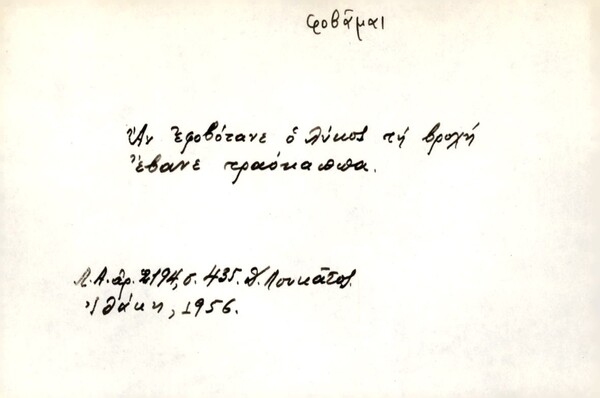 φοβᾶμαι
Ἂν ἐφοβότανε ὁ λύκος τή βροχή
ἔβανε τραόκαππα.
Λ.Α. ἀρ. 2194, σ. 435. Δ. Λουκᾶτος
Ἰθάκη, 1956.